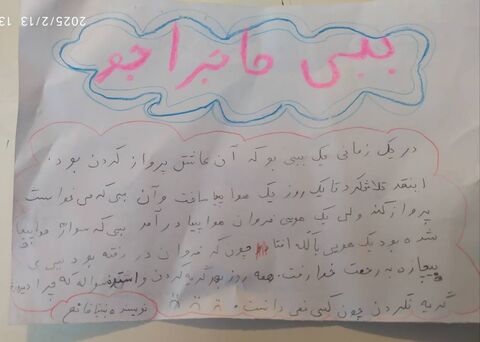 2025/2/13 13
ببسی ماجراجو
در یک زمانی یک ببی بو که آن عاشق پرواز کردن بود.
اینقد تلاش کرد تا یک روز یک هواپیما ساخت و آن ببی که می خواست
پرواز کند ولی یک موسی فروان هواپیما در آمد ببی که سوار هواپیما
شده بود یک هویی با کله افتا چون که فروان در رفته بود ببی ی
بیچاره به رحمت خدا رفت. همه روز بهر گریه کردن و استد سواله که چرا
گریه نکردن چون کسی نمی دانست
نویسنده